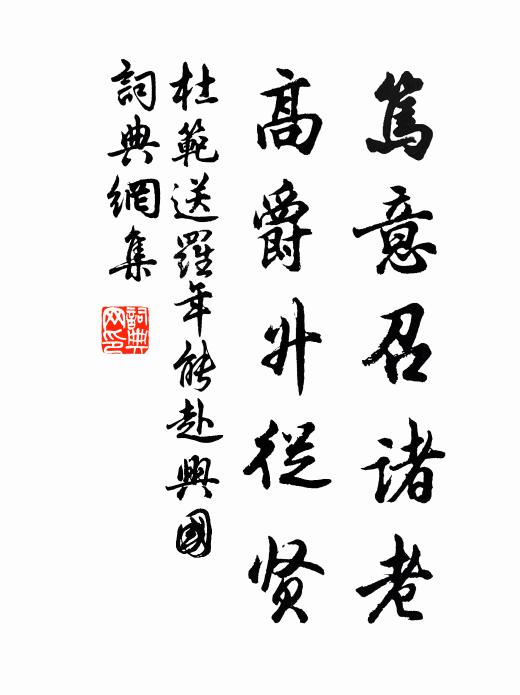 篤意召諸老
高爵升從贤
杜範送羅年能赴興國
詞典網集
詞典网印